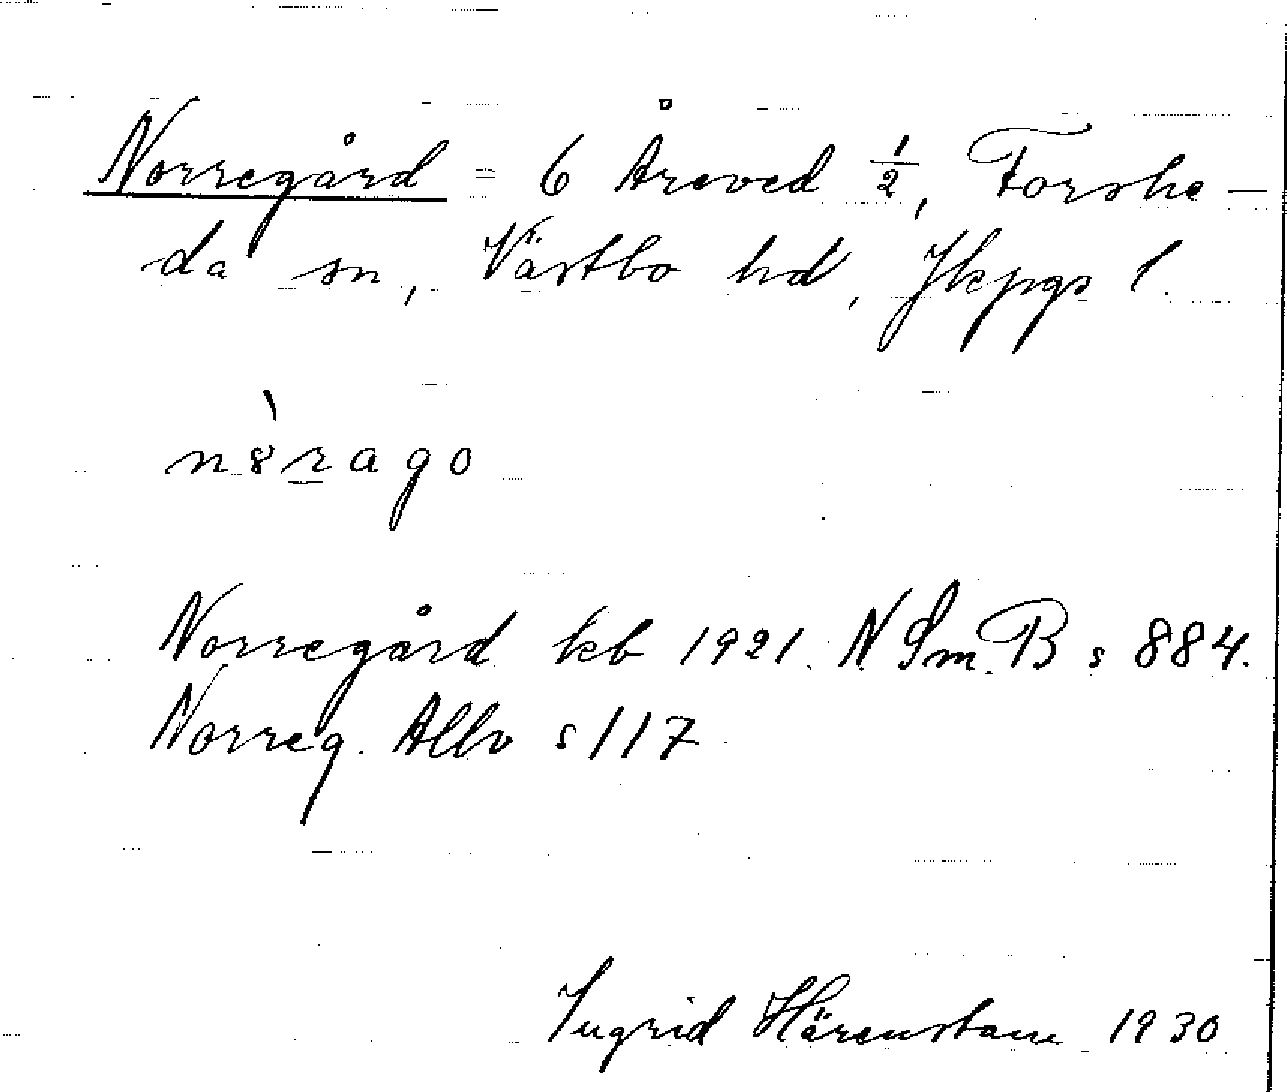 Norregård = 6 Åreved ½, Forshe-
da sn, Västbo hd, Jkpgs l.
n8̀r̲ago
Norregård kb 1921. N Sm. B s 884.
Norreg. Allb s 117
Ingrid Härenstam 1930